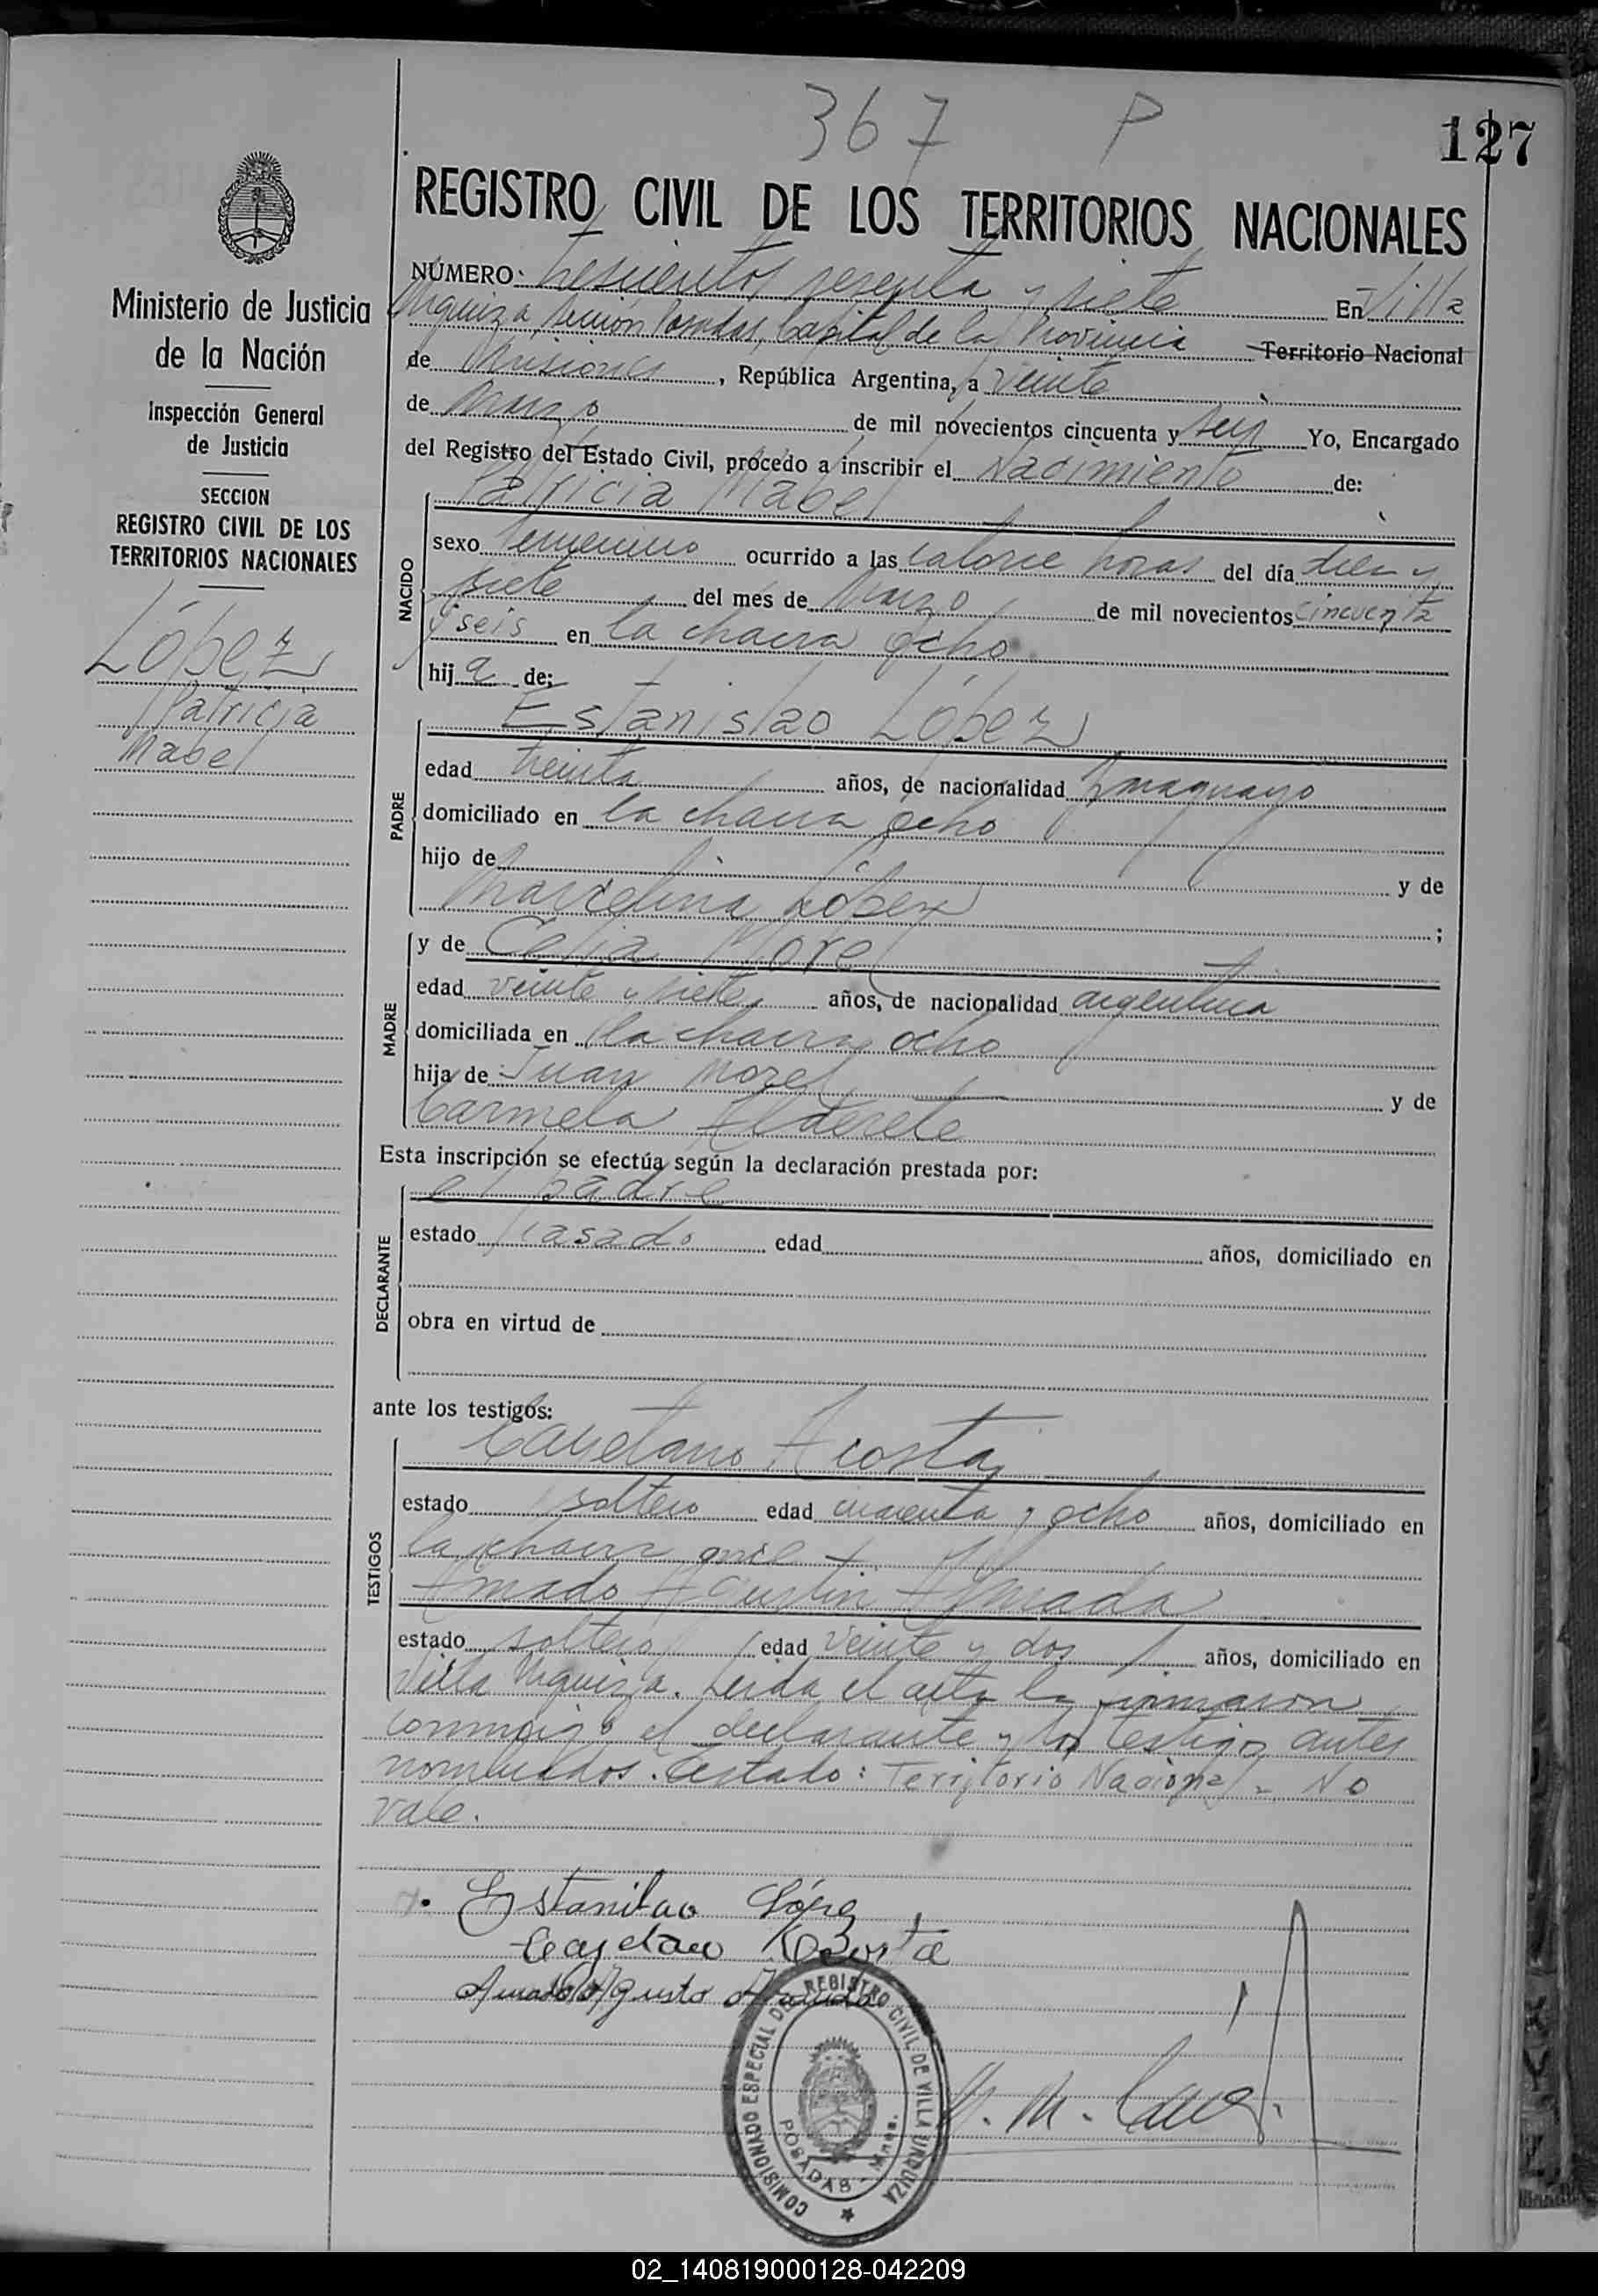 367 P 127
REGISTRO CIVIL DE LOS TERRITORIOS NACIONALES
Ministerio de Justicia
de la Nación
Inspección General
de Justicia
SECCION
REGISTRO CIVIL DE LOS
TERRITORIOS NACIONALES
López
Patricia
Mabel
NÚMERO: trescientos sesenta y siete En Villa
Urquiza, sección Posadas, Capital de la Provincia Territorio Nacional
de Misiones, República Argentina, a veinte
de Marzo de mil novecientos cincuenta y seis Yo, Encargado
del Registro del Estado Civil, procedo a inscribir el Nacimiento de:
NACIDO
Patricia Mabel
sexo femenino ocurrido a las catorce horas del día diez y
siete del mes de Marzo de mil novecientos cincuenta
y seis en la chacra ocho
hija de:
PADRE
Estanislao López
edad treinta años, de nacionalidad paraguayo
domiciliado en la chacra ocho
hijo de y de
Marcelina López ;
MADRE
y de Celia Morel
edad veinte y siete años, de nacionalidad argentina
domiciliada en la chacra ocho
hija de Juan Morel y de
Carmela Alderete
Esta inscripción se efectúa según la declaración prestada por:
DECLARANTE
el padre
estado casado edad años, domiciliado en
obra en virtud de
ante los testigos:
TESTIGOS
Cayetano Acosta
estado soltero edad cuarenta y ocho años, domiciliado en
la chacra once +
Amado Agustin
estado soltero edad veinte y dos años, domiciliado en
Villa Urquiza. Leida el acta la firmaron
conmigo el declarante y los testigos antes
nombrados. Testado: Territorio Nacional - No
vale.
Estanilao López
Cayetano Acosta
Amado Agusto
COMISIONADO ESPECIAL DEL REGISTRO CIVIL DE VILLA URQUIZA
POSADAS - Mnes.
02_140819000128-042209